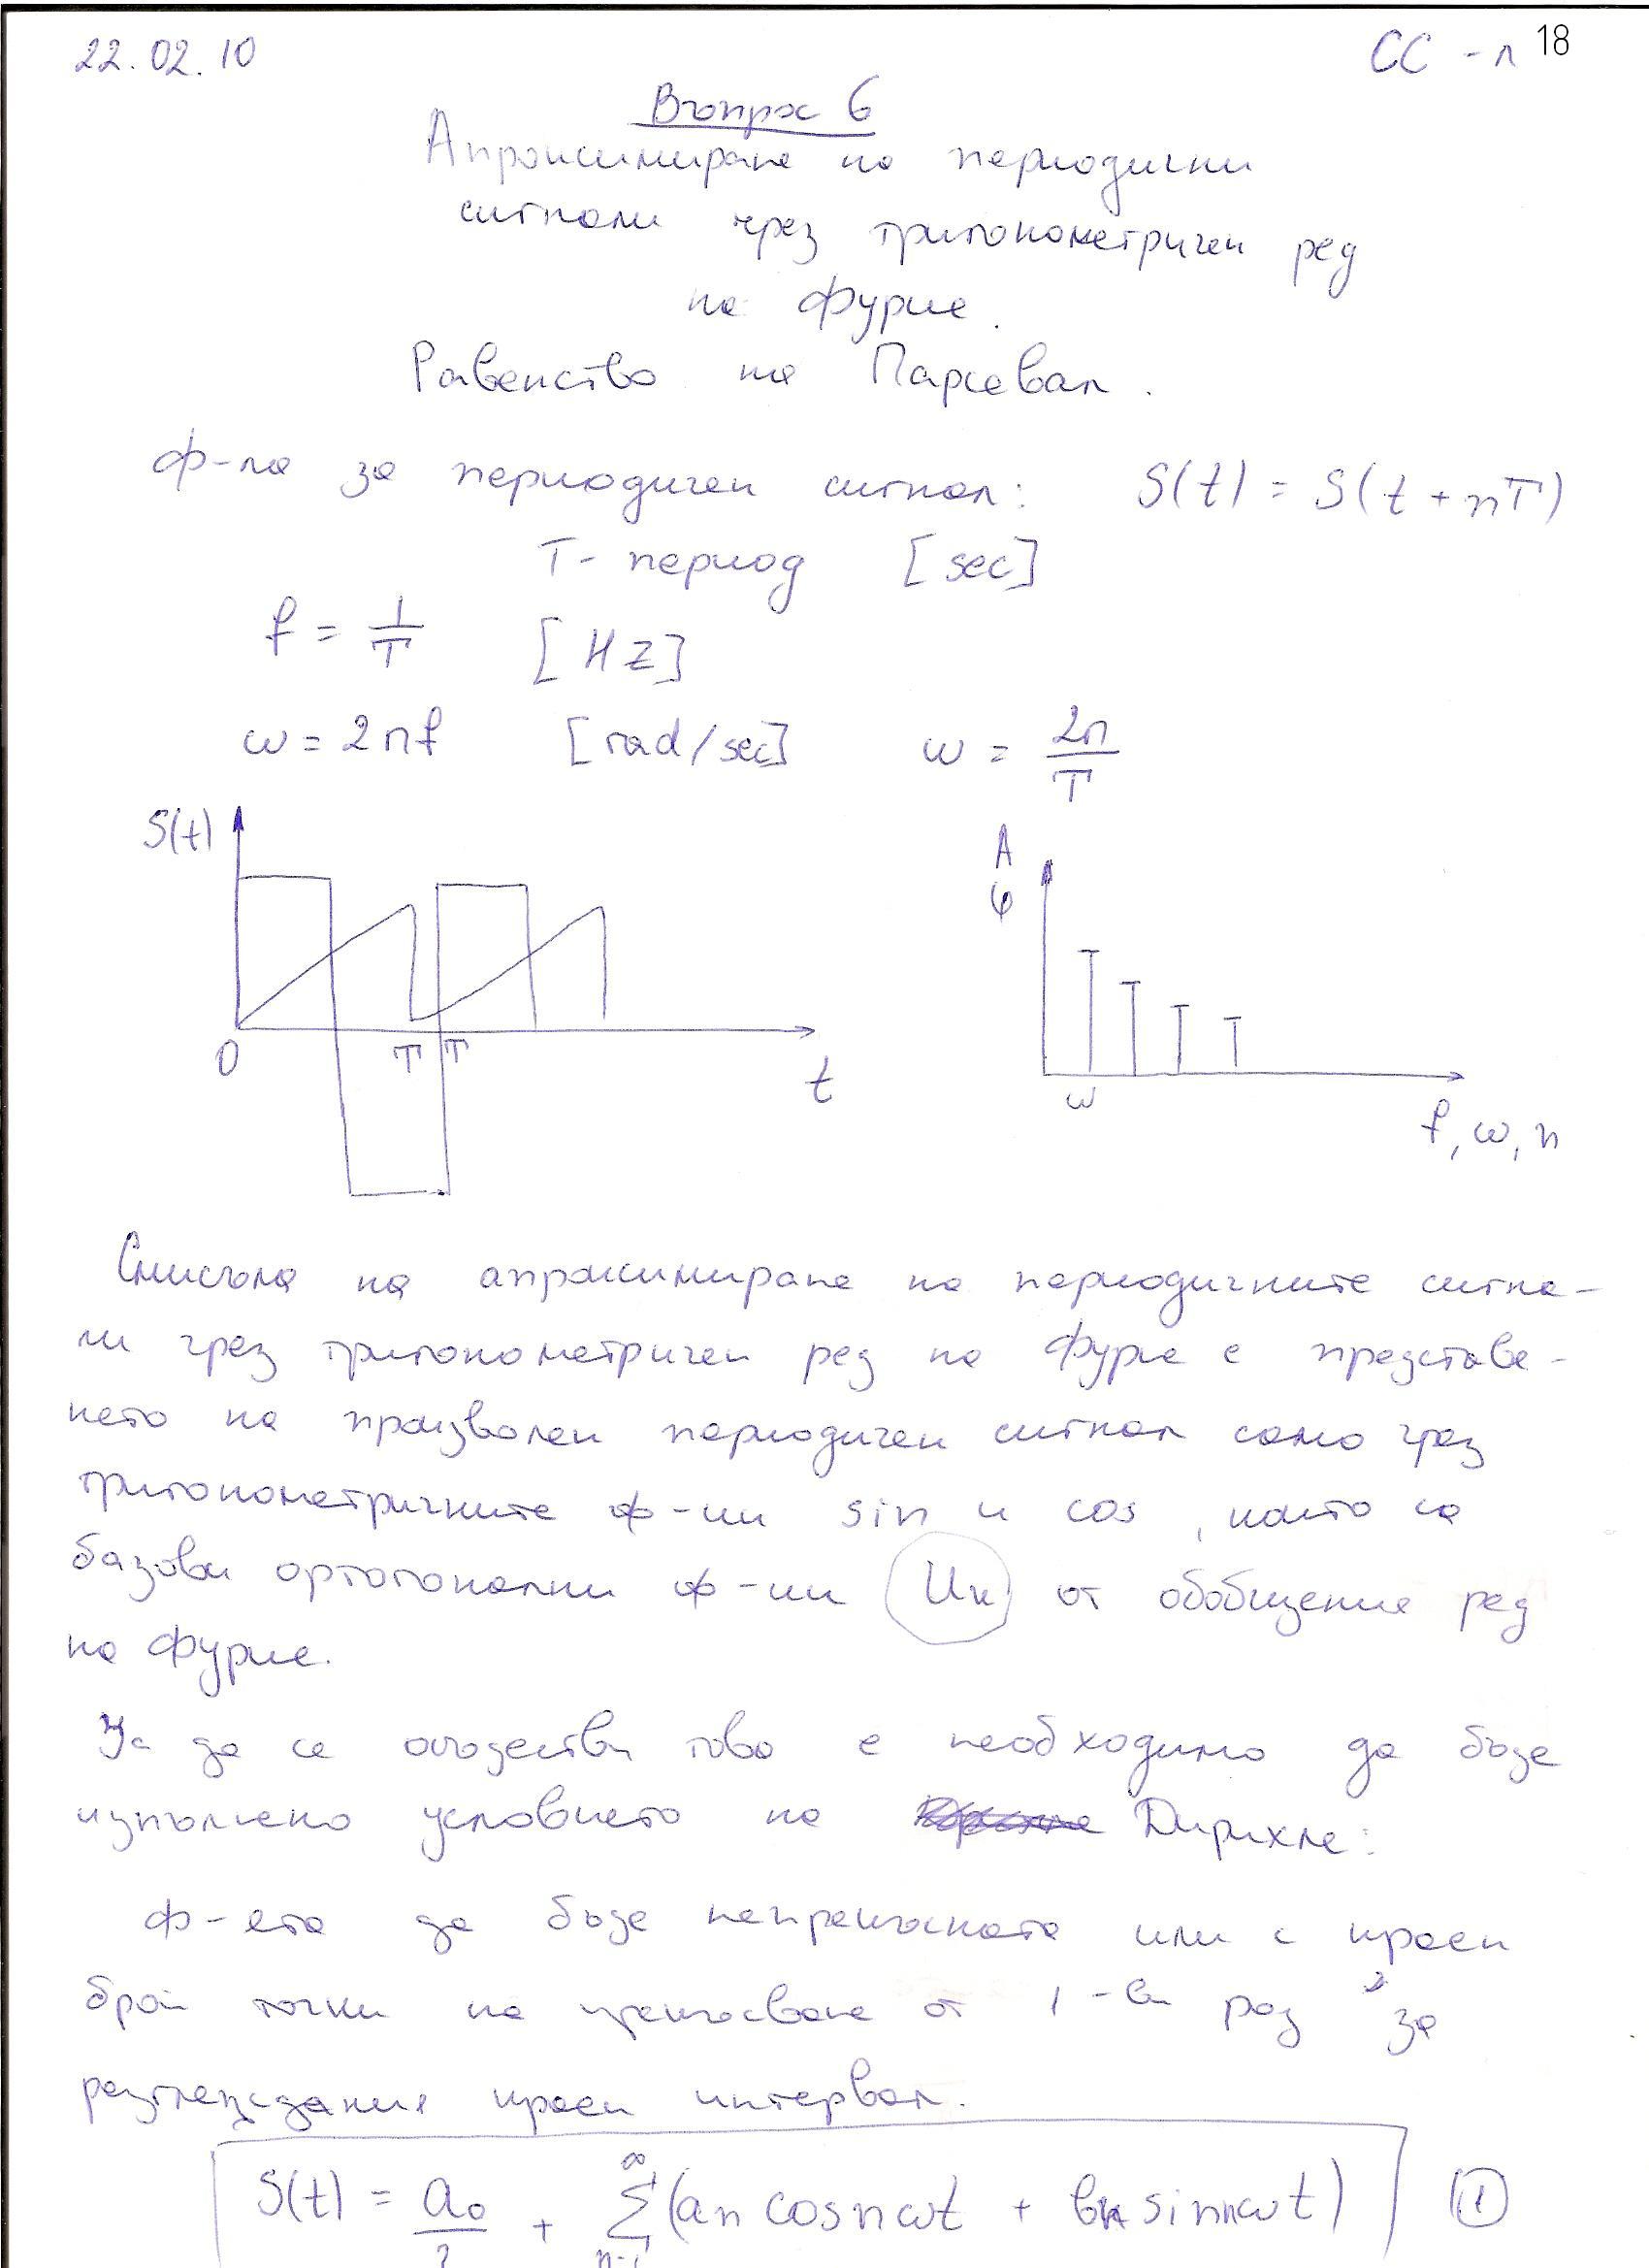 22.02.10
СС - л 18
Въпрос 6
Апроксимиране на периодични
сигнали чрез тригонометричен ред
на Фурие.
Равенство на Парсевал.
Ф-ла за периодичен сигнал: S(t) = S(t + nT)
T - период [sec]
f = 1/T [HZ]
ω = 2πf [rad/sec] ω = 2π/T
S(t)
A
φ
0 T T t
ω
f, ω, n
Смисъла на апроксимиране на периодичните сигна-
ли чрез тригонометричен ред на Фурие е представя-
нето на произволен периодичен сигнал само чрез
тригонометричните ф-ии sin и cos, които са
базови ортогонални ф-ии Uк от обобщения ред
на Фурие.
За да се осъществи това е необходимо да бъде
изпълнено условието на Дирихле:
Ф-ята да бъде непрекъсната или с краен
брой точки на прекъсване от 1-ви род за
разглеждания краен интервал.
S(t) = a₀/2 + ∞Σn=1 (an cosnωt + bn sinnωt) ①